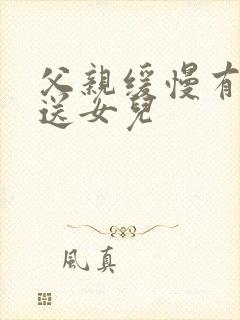 父親缓慢有
送女兒
風真